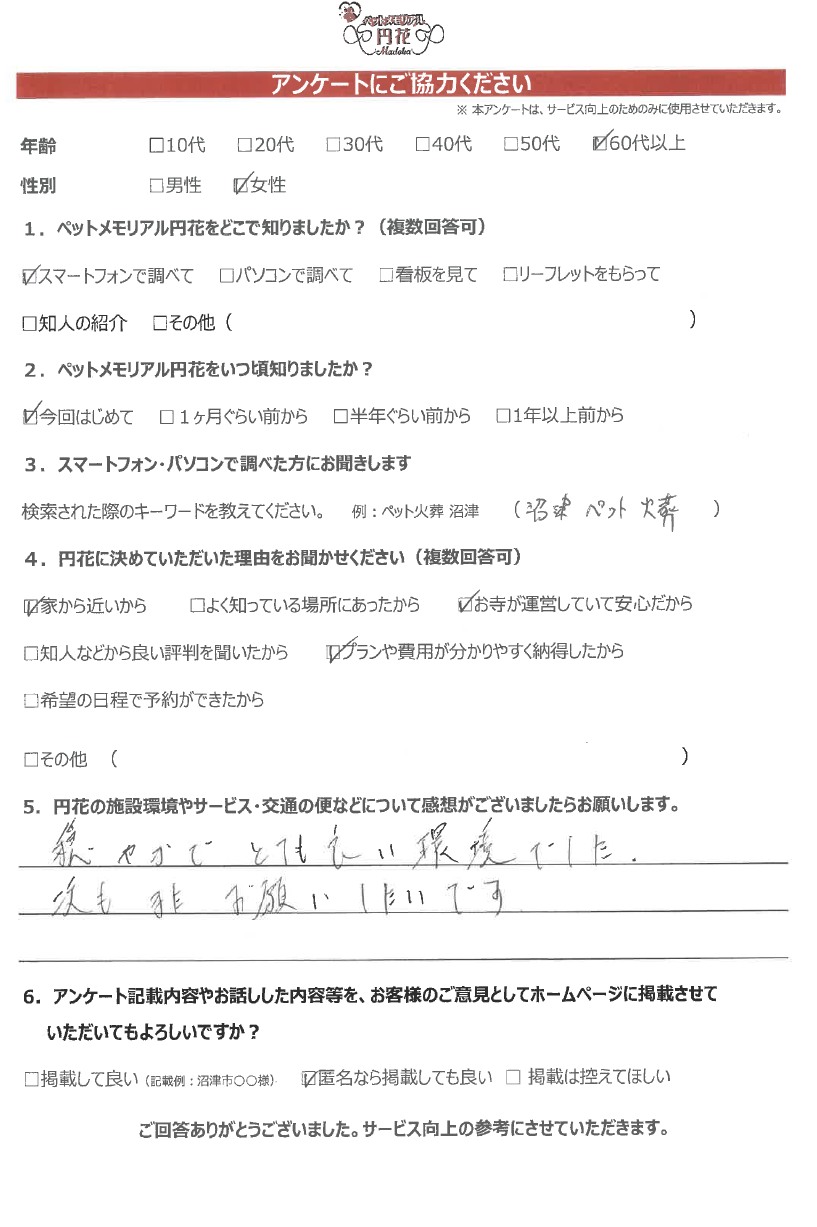 ペットメモリアル
円花
Madoka
アンケートにご協力ください
※ 本アンケートは、サービス向上のためのみに使用させていただきます。
年齢 □10代 □20代 □30代 □40代 □50代 ☑60代以上
性別 □男性 ☑女性
1．ペットメモリアル円花をどこで知りましたか？（複数回答可）
☑スマートフォンで調べて □パソコンで調べて □看板を見て □リーフレットをもらって
□知人の紹介 □その他（ ）
2．ペットメモリアル円花をいつ頃知りましたか？
☑今回はじめて □１ヶ月ぐらい前から □半年ぐらい前から □1年以上前から
3．スマートフォン・パソコンで調べた方にお聞きします
検索された際のキーワードを教えてください。 例：ペット火葬 沼津 （沼津 ペット 火葬）
4．円花に決めていただいた理由をお聞かせください（複数回答可）
☑家から近いから □よく知っている場所にあったから ☑お寺が運営していて安心だから
□知人などから良い評判を聞いたから ☑プランや費用が分かりやすく納得したから
□希望の日程で予約ができたから
□その他 （ ）
5．円花の施設環境やサービス・交通の便などについて感想がございましたらお願いします。
穏やかで とても良い環境でした.
次も 是非 お願いしたいです
6．アンケート記載内容やお話しした内容等を、お客様のご意見としてホームページに掲載させて
いただいてもよろしいですか？
□掲載して良い（記載例：沼津市〇〇様） ☑匿名なら掲載しても良い □ 掲載は控えてほしい
ご回答ありがとうございました。サービス向上の参考にさせていただきます。